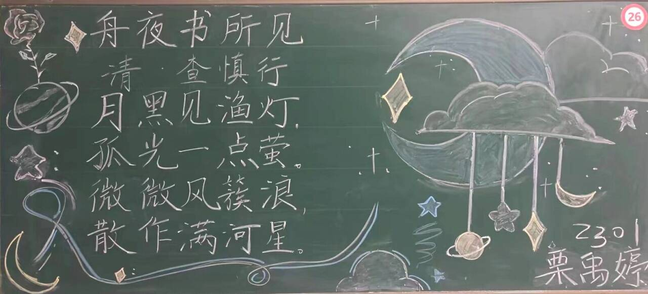 舟夜书所见
清·查慎行
月黑见渔灯,
孤光一点萤。
微微风簇浪,
散作满河星。
26
2301
栗禹婷